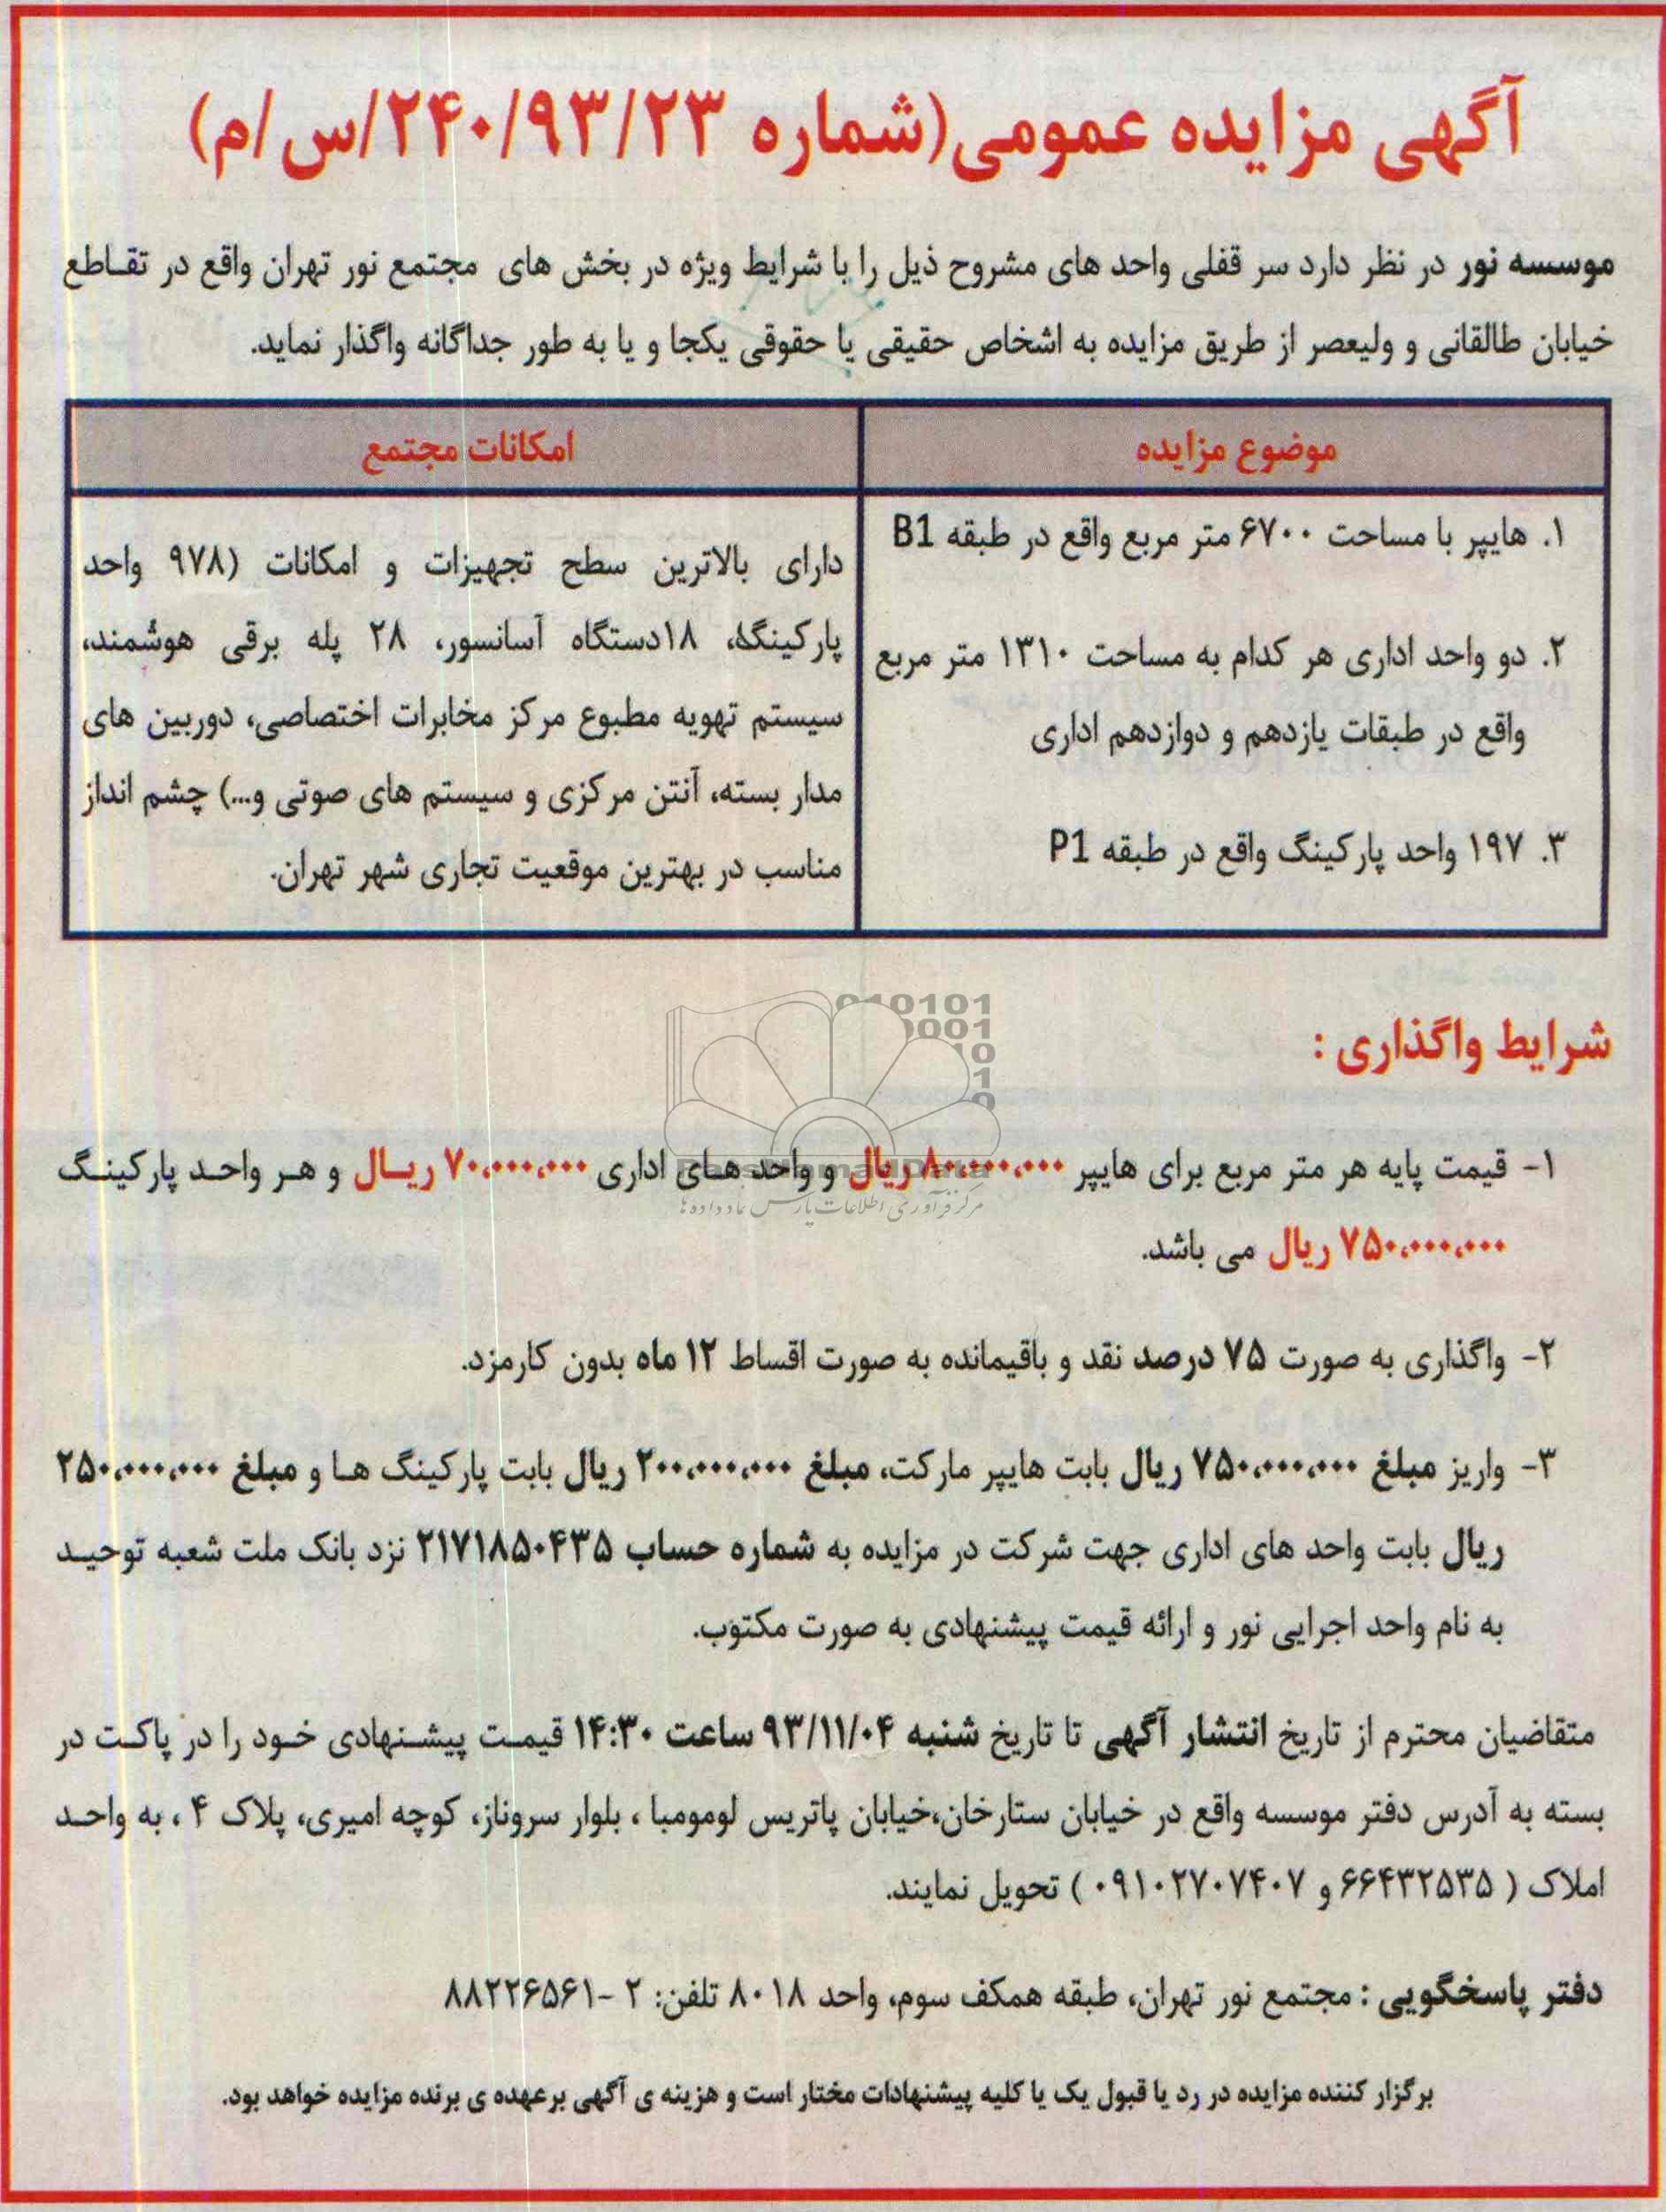 آگهی مزایده عمومی(شماره ۲۴۰/۹۳/۲۳/س/م)
موسسه نور در نظر دارد سر قفلی واحد های مشروح ذیل را با شرایط ویژه در بخش های مجتمع نور تهران واقع در تقاطع
خیابان طالقانی و ولیعصر از طریق مزایده به اشخاص حقیقی یا حقوقی یکجا و یا به طور جداگانه واگذار نماید.
موضوع مزایده
۱. هایپر با مساحت ۶۷۰۰ متر مربع واقع در طبقه B1
۲. دو واحد اداری هر کدام به مساحت ۱۳۱۰ متر مربع
واقع در طبقات یازدهم و دوازدهم اداری
۳. ۱۹۷ واحد پارکینگ واقع در طبقه P1
امکانات مجتمع
دارای بالاترین سطح تجهیزات و امکانات (۹۷۸ واحد
پارکینگ، ۱۸دستگاه آسانسور، ۲۸ پله برقی هوشمند،
سیستم تهویه مطبوع مرکز مخابرات اختصاصی، دوربین های
مدار بسته، آنتن مرکزی و سیستم های صوتی و...) چشم انداز
مناسب در بهترین موقعیت تجاری شهر تهران.
010101
0001
10
1
0
شرایط واگذاری :
۱- قیمت پایه هر متر مربع برای هایپر ۸۰،۰۰۰،۰۰۰ ریال و واحد های اداری ۷۰،۰۰۰،۰۰۰ ریال و هر واحد پارکینگ
۷۵۰،۰۰۰،۰۰۰ ریال می باشد.
مرکز فرآوری اطلاعات پارس نماد داده ها
۲- واگذاری به صورت ۷۵ درصد نقد و باقیمانده به صورت اقساط ۱۲ ماه بدون کارمزد.
۳- واریز مبلغ ۷۵۰،۰۰۰،۰۰۰ ریال بابت هایپر مارکت، مبلغ ۲۰۰،۰۰۰،۰۰۰ ریال بابت پارکینگ ها و مبلغ ۲۵۰،۰۰۰،۰۰۰
ریال بابت واحد های اداری جهت شرکت در مزایده به شماره حساب ۲۱۷۱۸۵۰۴۳۵ نزد بانک ملت شعبه توحید
به نام واحد اجرایی نور و ارائه قیمت پیشنهادی به صورت مکتوب.
متقاضیان محترم از تاریخ انتشار آگهی تا تاریخ شنبه ۹۳/۱۱/۰۴ ساعت ۱۴:۳۰ قیمت پیشنهادی خود را در پاکت در
بسته به آدرس دفتر موسسه واقع در خیابان ستارخان،خیابان پاتریس لومومبا ، بلوار سروناز، کوچه امیری، پلاک ۴ ، به واحد
املاک ( ۶۶۴۳۲۵۳۵ و ۰۹۱۰۲۷۰۷۴۰۷ ) تحویل نمایند.
دفتر پاسخگویی : مجتمع نور تهران، طبقه همکف سوم، واحد ۸۰۱۸ تلفن: ۲ -۸۸۲۲۶۵۶۱
برگزار کننده مزایده در رد یا قبول یک یا کلیه پیشنهادات مختار است و هزینه ی آگهی برعهده ی برنده مزایده خواهد بود.